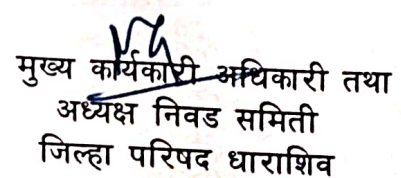 मुख्य कार्यकारी अधिकारी तथा
अध्यक्ष निवड समिती
जिल्हा परिषद धाराशिव